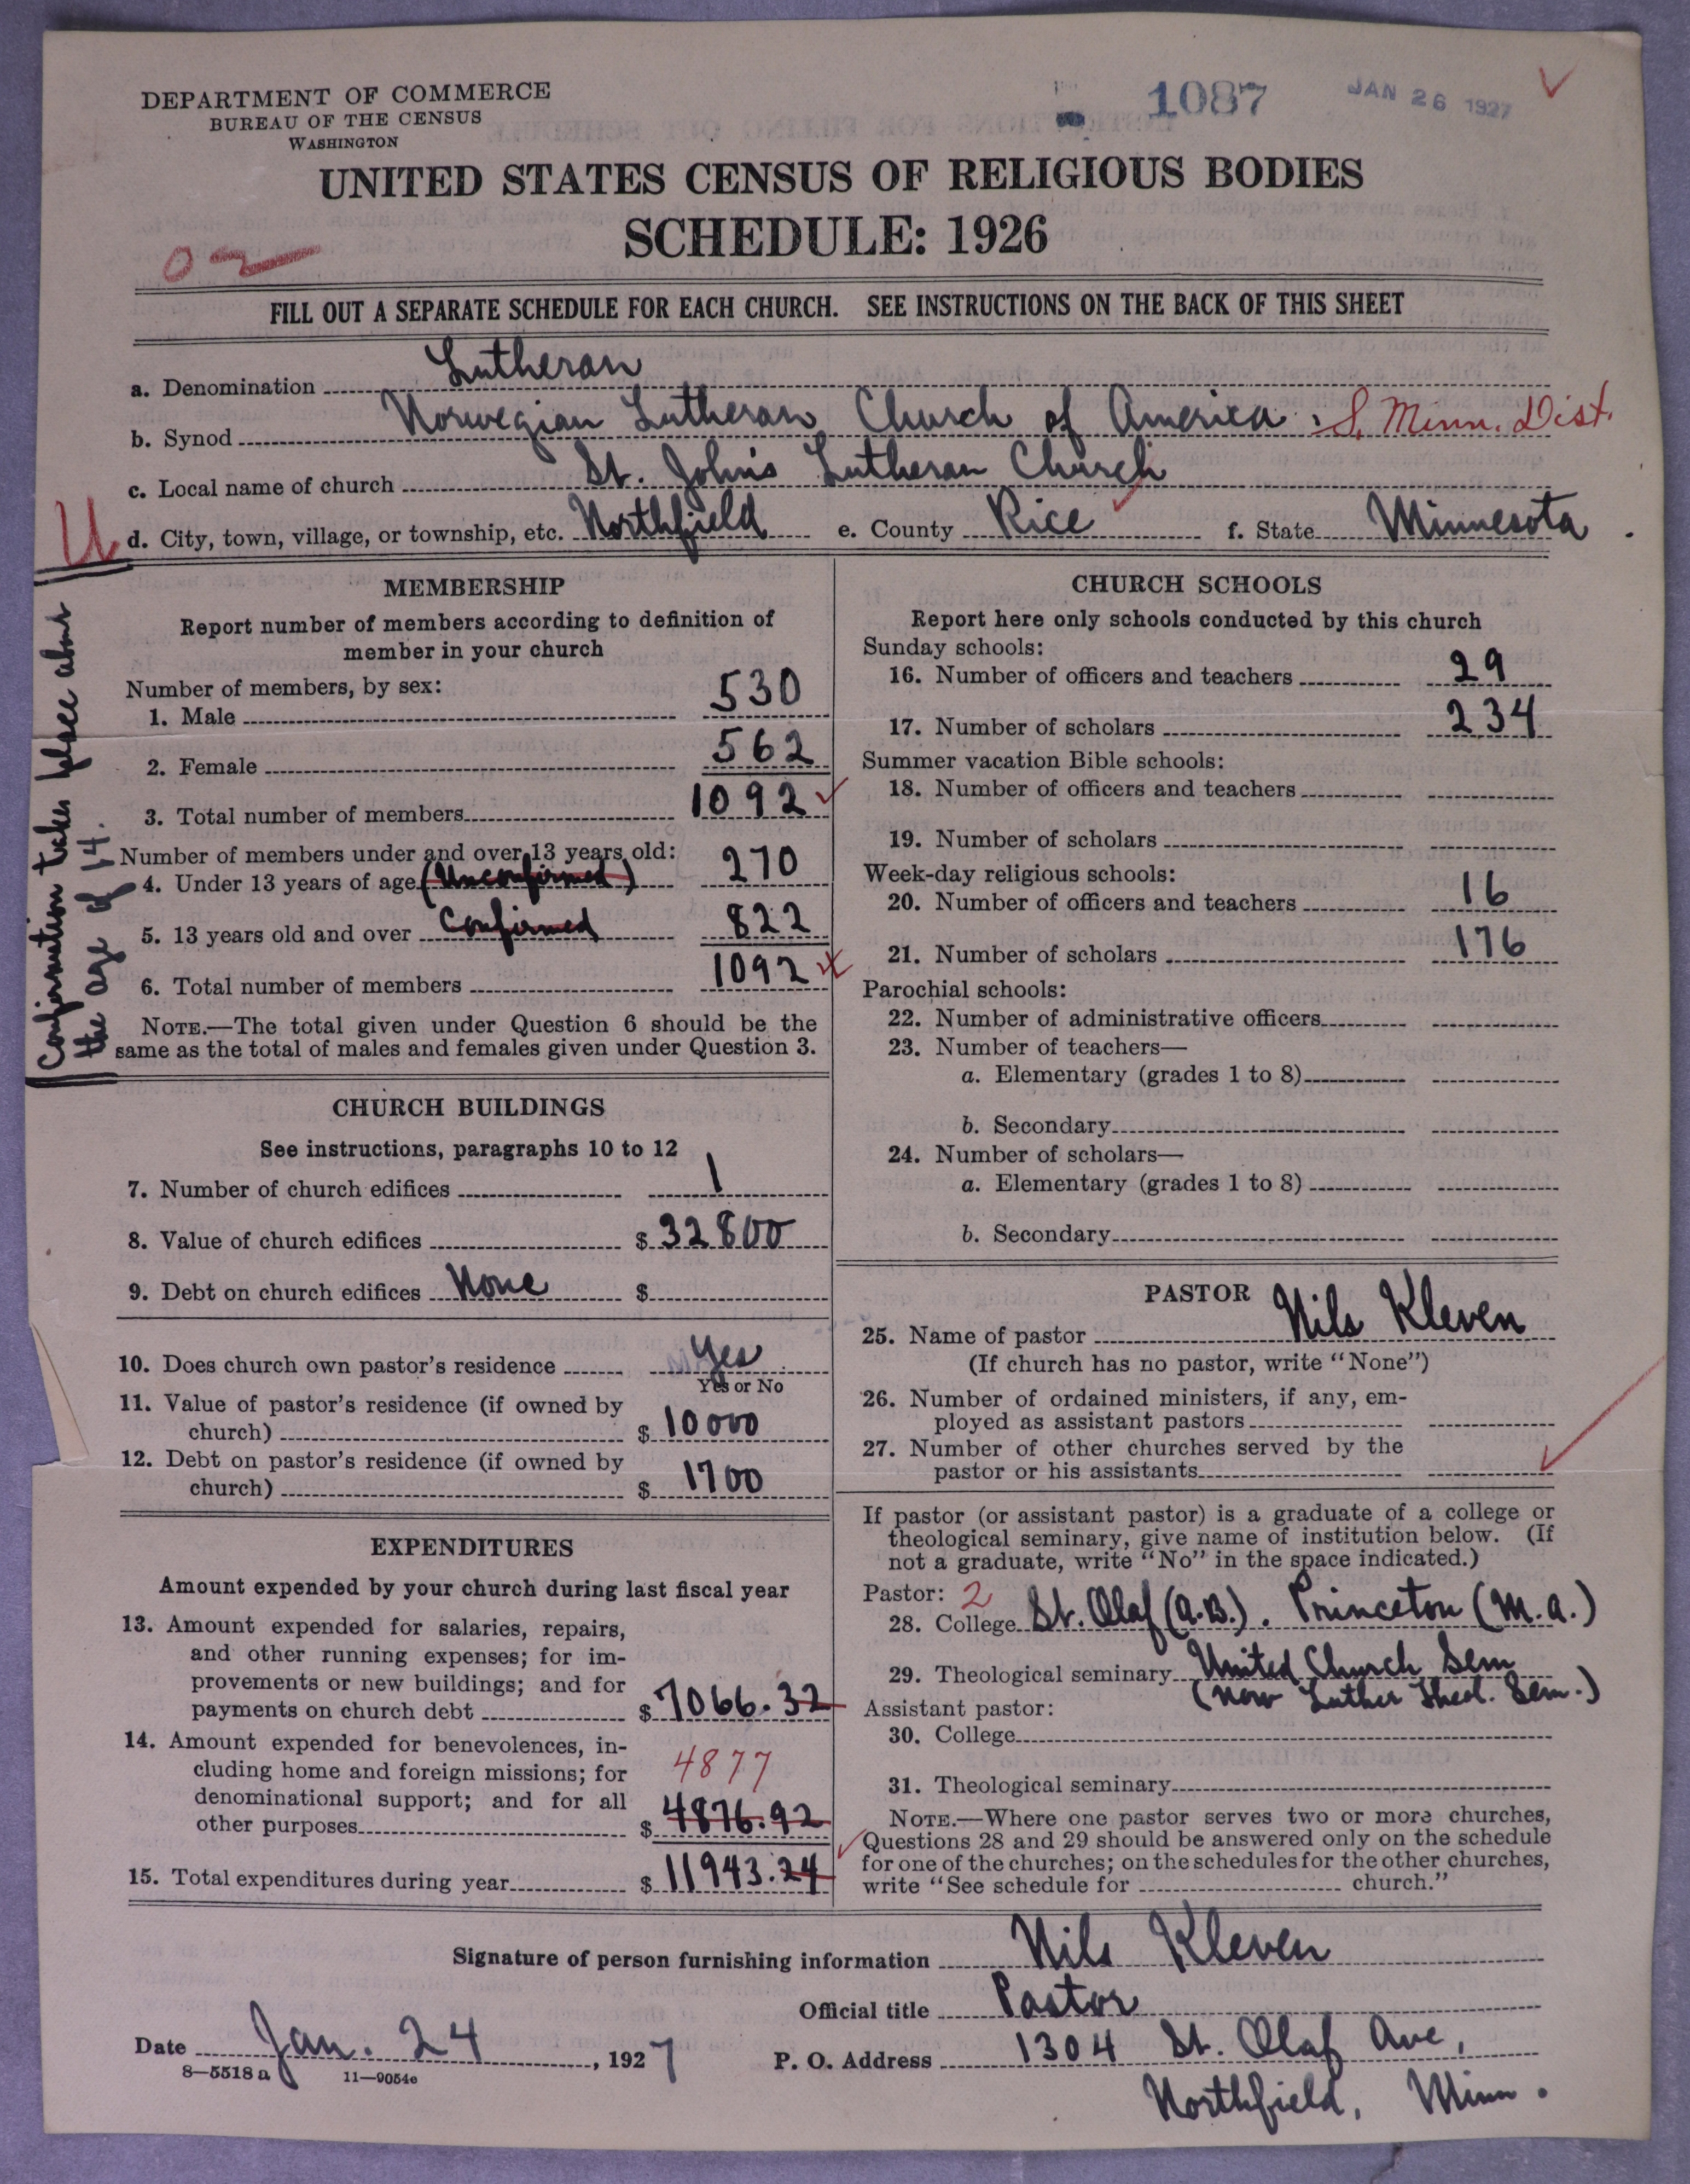 DEPARTMENT OF COMMERCE
BUREAU OF THE CENSUS
WASHINGTON
1087
JAN 26 1927
UNITED STATES CENSUS OF RELIGIOUS BODIES
SCHEDULE: 1926
FILL OUT A SEPARATE SCHEDULE FOR EACH CHURCH. SEE INSTRUCTIONS ON THE BACK OF THIS SHEET
a. Denomination Lutheran
b. Synod Norwegian Lutheran Church of America. S. Minn. Dist.
c. Local name of church St. John's Lutheran Church
d. City, town, village, or township, etc. Northfield e. County Rice f. State Minnesota.
Confirmation takes place about
the age of 14.
MEMBERSHIP
Report number of members according to definition of
member in your church
Number of members, by sex:
1. Male 530
2. Female 562
3. Total number of members 1092
Number of members under and over 13 years old:
4. Under 13 years of age (Unconfirmed) 270
5. 13 years old and over Confirmed 822
6. Total number of members 1092
NOTE.—The total given under Question 6 should be the
same as the total of males and females given under Question 3.
CHURCH BUILDINGS
See instructions, paragraphs 10 to 12
7. Number of church edifices 1
8. Value of church edifices $32800
9. Debt on church edifices None $
10. Does church own pastor's residence Yes
Yes or No
11. Value of pastor's residence (if owned by
church) $10000
12. Debt on pastor's residence (if owned by
church) $1700
EXPENDITURES
Amount expended by your church during last fiscal year
13. Amount expended for salaries, repairs,
and other running expenses; for im-
provements or new buildings; and for
payments on church debt $7066.32
14. Amount expended for benevolences, in-
cluding home and foreign missions; for 4877
denominational support; and for all
other purposes $4876.92
15. Total expenditures during year $11943.24
CHURCH SCHOOLS
Report here only schools conducted by this church
Sunday schools:
16. Number of officers and teachers 29
17. Number of scholars 234
Summer vacation Bible schools:
18. Number of officers and teachers
19. Number of scholars
Week-day religious schools:
20. Number of officers and teachers 16
21. Number of scholars 176
Parochial schools:
22. Number of administrative officers
23. Number of teachers—
a. Elementary (grades 1 to 8)
b. Secondary
24. Number of scholars—
a. Elementary (grades 1 to 8)
b. Secondary
PASTOR
25. Name of pastor Nils Kleven
(If church has no pastor, write "None")
26. Number of ordained ministers, if any, em-
ployed as assistant pastors
27. Number of other churches served by the
pastor or his assistants
If pastor (or assistant pastor) is a graduate of a college or
theological seminary, give name of institution below. (If
not a graduate, write "No" in the space indicated.)
Pastor: 2
28. College St. Olaf (A.B.). Princeton (M.A.)
29. Theological seminary United Church Sem
(now Luther Theol. Sem.)
Assistant pastor:
30. College
31. Theological seminary
NOTE.—Where one pastor serves two or more churches,
Questions 28 and 29 should be answered only on the schedule
for one of the churches; on the schedules for the other churches,
write "See schedule for church."
Signature of person furnishing information Nils Kleven
Official title Pastor
Date Jan. 24, 1927
P. O. Address 1304 St. Olaf Ave,
Northfield, Minn.
8—5518 a 11—9054c